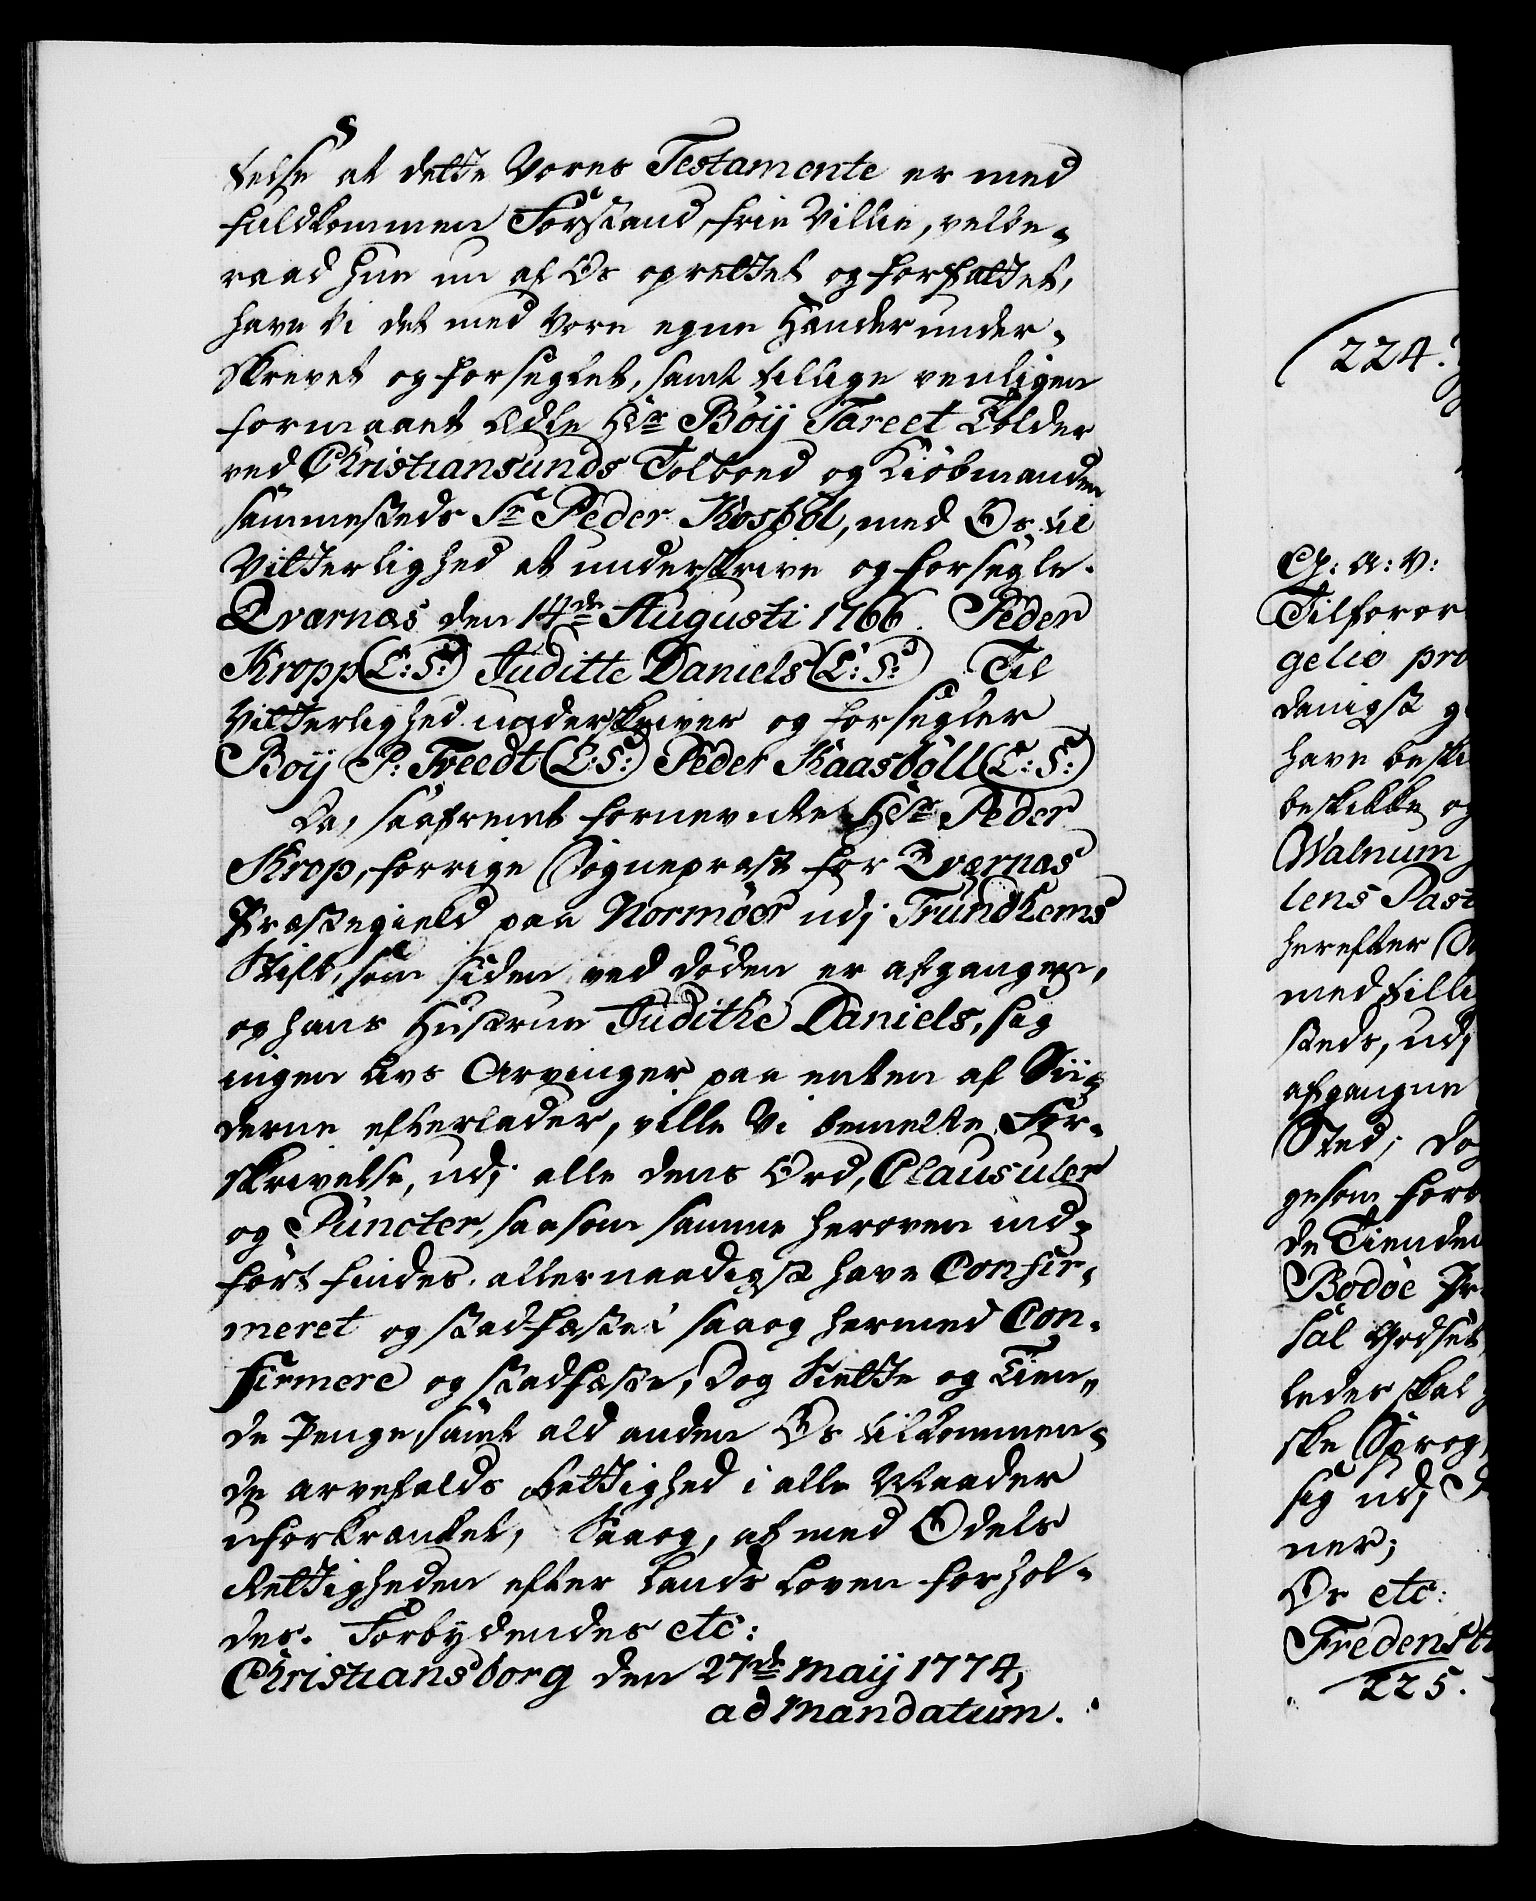 telse at dette Vores Testamente er med
fuldkommen Forstand, frie Villie, velbe-
raad Hue nu af Os oprettet og forfattet,
have Vi det med Vore egne Hænder under-
skrevet og forseglet, samt tillige venligen
formaaet Ædle Hr Böij Tareet Tolder
ved Christiansunds Tolboed og Kiöbmanden
sammesteds Sr Peder Kosböl, med Os til
Vitterlighed at underskrive og forsegle.
Qvarnæs den 14de Augusti 1766. Peder
Kropp (L:S:) Juditte Daniels (L:S:) Til
Vitterlighed underskriver og forsegler
Boij P: Treedt (L:S:) Peder Kaasböll (L:S:)
Da, saafremt fornevndte Hr Peder
Krop, forrige Sognepræst for Qværnæs
Præstegield paa Normöer udj Trundhems
Stift, som siden ved döden er afgangen,
og hans Hustrue Judithe Daniels, sig
ingen Livs Arvinger paa enten af Sii-
derne efterlader, ville Vi bemelte For-
skrivelse, udj alle dens Ord, Clausuler
og Puncter, saasom samme herоven ind-
fört findes, allernaadigst have Confir-
meret og stadfæstet, saaog hermed Con-
firmere og stadfæste; Dog Siette og Tien-
de Penge, samt ald anden Os tilkommen-
de arvefalds Rettighed i alle Maader
uforkrænket, Saaog, at med Odels
Rettigheden efter Lands Loven forhol-
des. Forbydendes etc:
Christiansborg den 27de Maij 1774,
ad mandatum.
224.
C7: a: v:
Tilforor
gelio pro
danigst g
have beski
beskikke og
Walnum
lens Past
herefter
med tilli
steds, udj
afgangne
Sted; Dog
gesom for
de Tienden
Bodöe Pr
sal Godset
leder skal
ske Sprog
sig udj D
ner;
Os etc:
Fredensb
225.